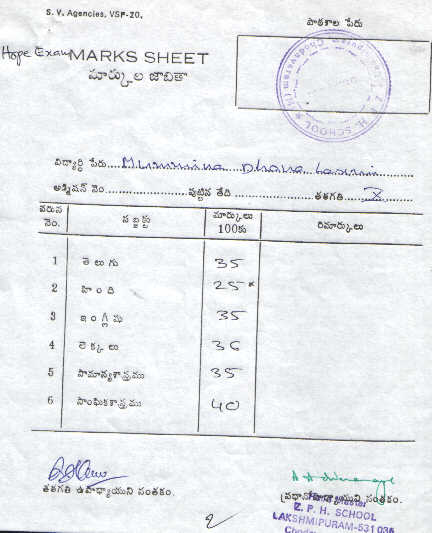 S. V. Agencies, VSP-20.
పాఠశాల పేరు
Hope Exam MARKS SHEET
మార్కుల జాబితా
H. SCHOOL
విద్యార్థి పేరు Dhana Laxmi
అడ్మిషన్ నెం. పుట్టిన తేది తరగతి X
వరుస నెం. సబ్జక్టు మార్కులు 100కు రిమార్కులు
1 తెలుగు 35
2 హింది 25*
3 ఇంగ్లీషు 35
4 లెక్కలు 36
5 సామాన్యశాస్త్రము 35
6 సాంఘికశాస్త్రము 40
తరగతి ఉపాధ్యాయుని సంతకం. ప్రధానోపాధ్యాయుని సంతకం.
Z. P. H. SCHOOL
LAKSHMIPURAM-531 036
2